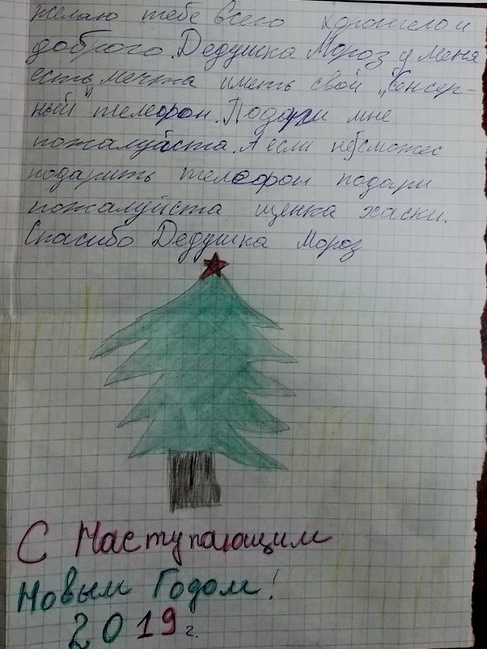 желаю тебе всего хорошего и
доброго. Дедушка Мороз у меня
есть мечта иметь свой "Сенсер-
ный" телефон. Подари мне
пожалуйста. А если не сможеш
подарить телефон подари
пожалуйста щенка хаски.
Спасибо Дедушка Мороз
С Наступающим
Новым Годом!
2019 г.